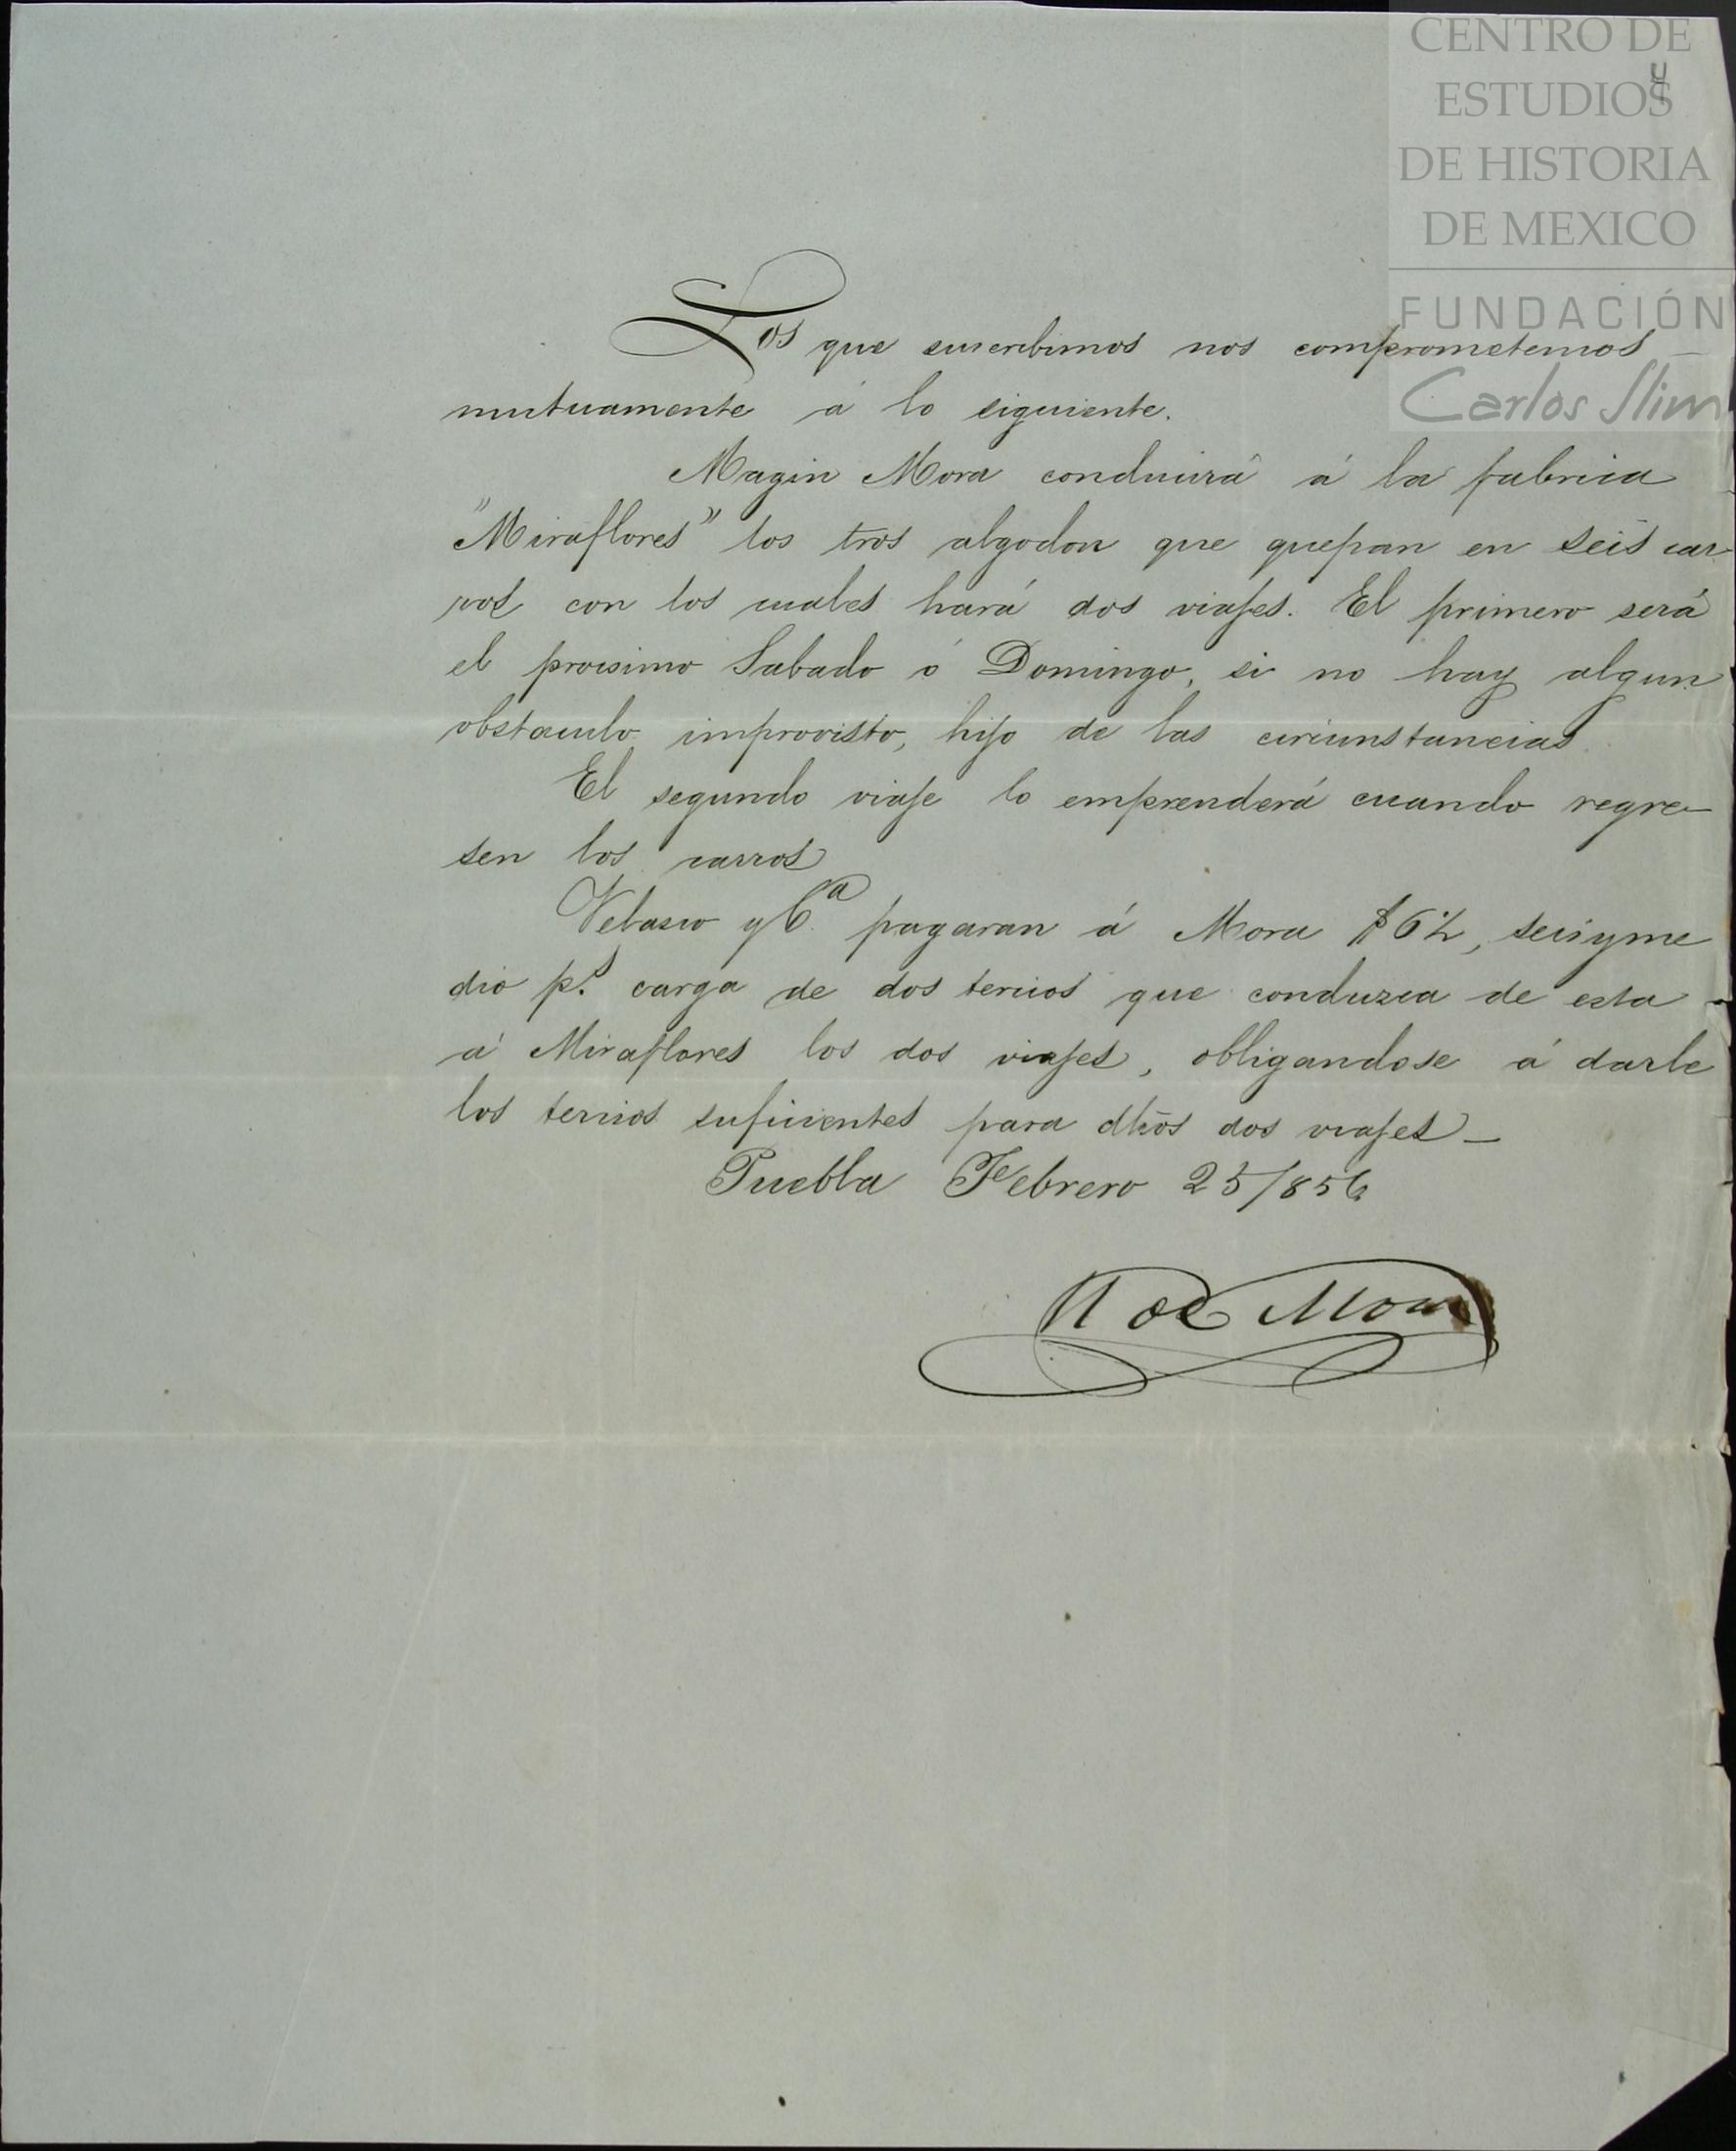 CENTRO DE
ESTUDIOS
DE HISTORIA
DE MEXICO
FUNDACIÓN
Carlos Slim
4
Los que suscribimos nos comprometemos
mutuamente á lo siguiente.
Magin Mora conducirá á la fabrica
"Miraflores" los tros algodon que quepan en seis car-
ros con los cuales hará dos viajes. El primero será
el procsimo Sabado ó Domingo, si no hay algun
obstaculo improvisto, hijo de las circunstancias.
El segundo viaje lo emprenderá cuando regre-
sen los carros
Velasco y Cª pagaran á Mora $6½, seis y me
dio ps. carga de dos tercios que conduzca de esta
á Miraflores los dos viajes, obligandose á darle
los tercios suficientes para dhos dos viajes_
Puebla Febrero 25/856
de Mora